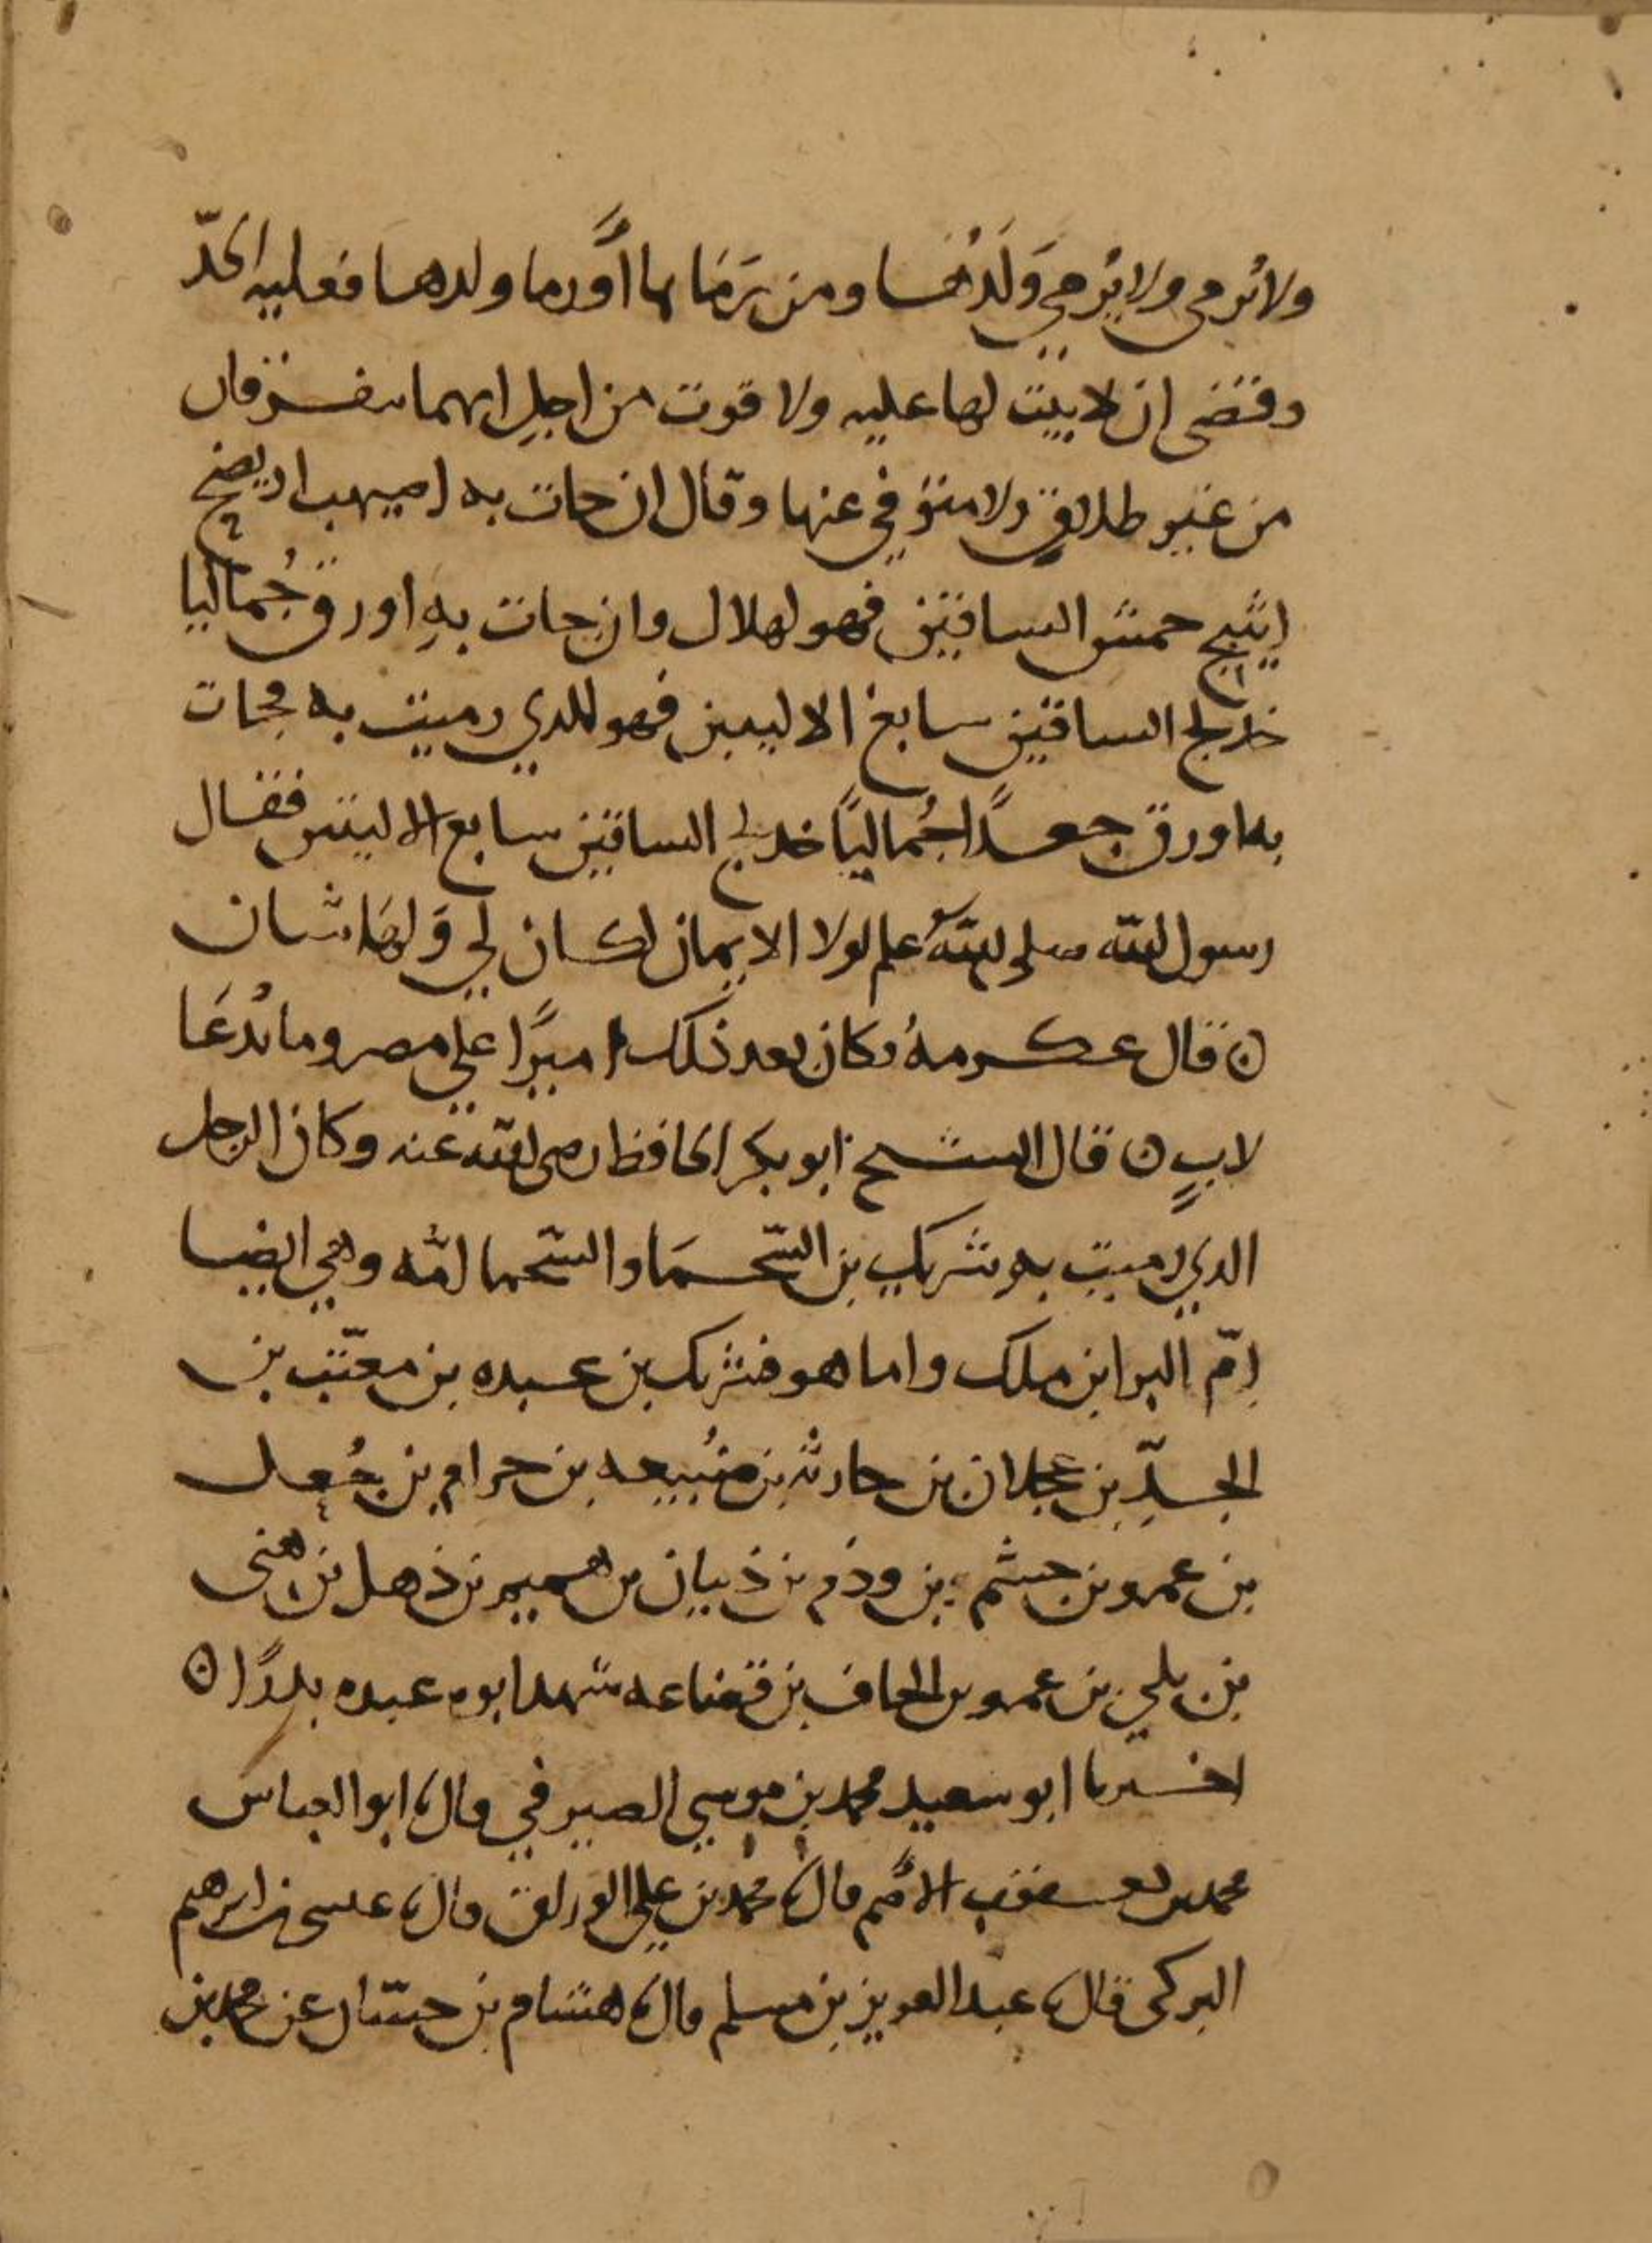 ولا تُرمى ولا يُرمى وَلَدُها ومن رَمَاها أو رما ولدها فعليه الحدّ
وقضى ان لا بيت لها عليه ولا قوت من اجل انهما يتفرقان
من غير طلاق ولا متوفي عنها وقال ان جات به اصيهب اريصح
اثيبج حمش الساقين فهو لهلال وان جات به اورق جُماليا
خدلج الساقين سابغ الاليتين فهو للذي رميت به فجات
به اورق جعدًا جُماليًا خدلج الساقين سابغ الاليتين فقال
رسول الله صلى الله علم لولا الايمان لكان لي وَلهَا شان
ن قال عكرمةُ وكان بعد ذلك اميرًا على مصر وما يُدعَا
لابٍ ن قال الشيخ ابو بكر الحافظ رضي الله عنه وكان الرجل
الذي رميت به شريك بن السّحمَا والسّحما امّه وهي ايضا
امّ البرا بن ملك واما هو فشريك بن عبده بن معتّب بن
الجدِّ بن عجلان بن حارثه بن ضُبيعه بن حرام بن جُعل
بن عمرو بن جشم بن وذم بن ذبيان بن هميم بن ذهل بن هنى
بن بلي بن عمرو بن الحاف بن قضاعه شهد ابوه عبده بدرًا ن
اخبرنا ابو سعيد محمد بن موسي الصيرفي قال ابو العباس
محمد بن يعقوب الاصم قال محمد بن علي الوراق قال عيسى بن ابرهيم
البركى قال عبد العزيز بن مسلم قال هشام بن حسّان عن محمد بن